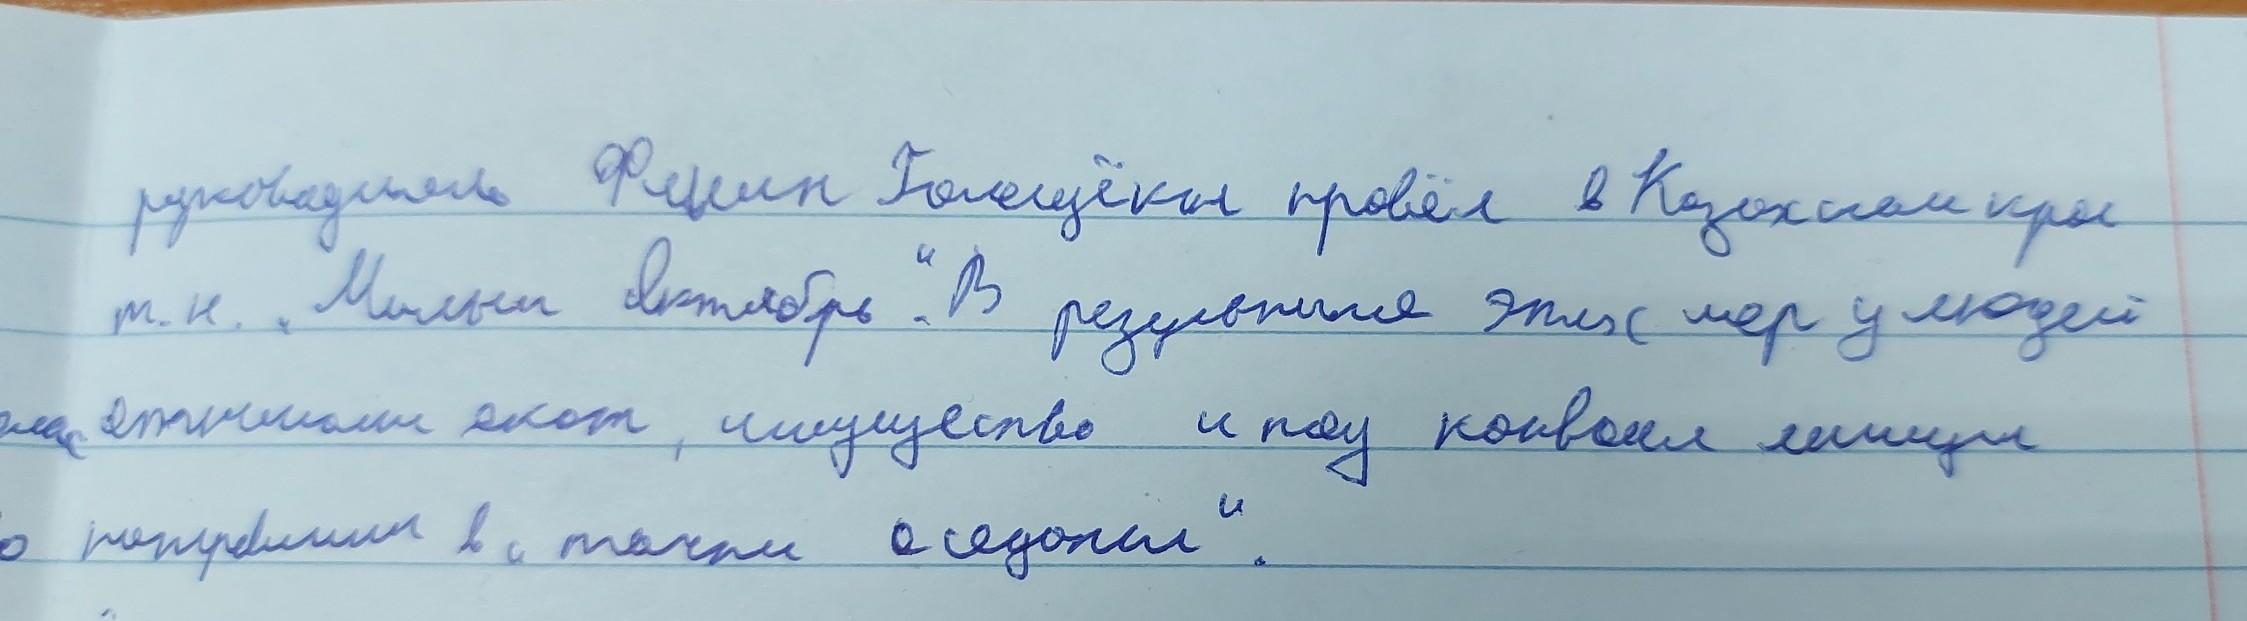 руководитель Филип Голощёкин провёл в Казахском крае
т.н. „Малый Октябрь“. В результате этих мер у людей
отнимали скот, имущество и под конвоем милиции
направляли в „точки оседания“.